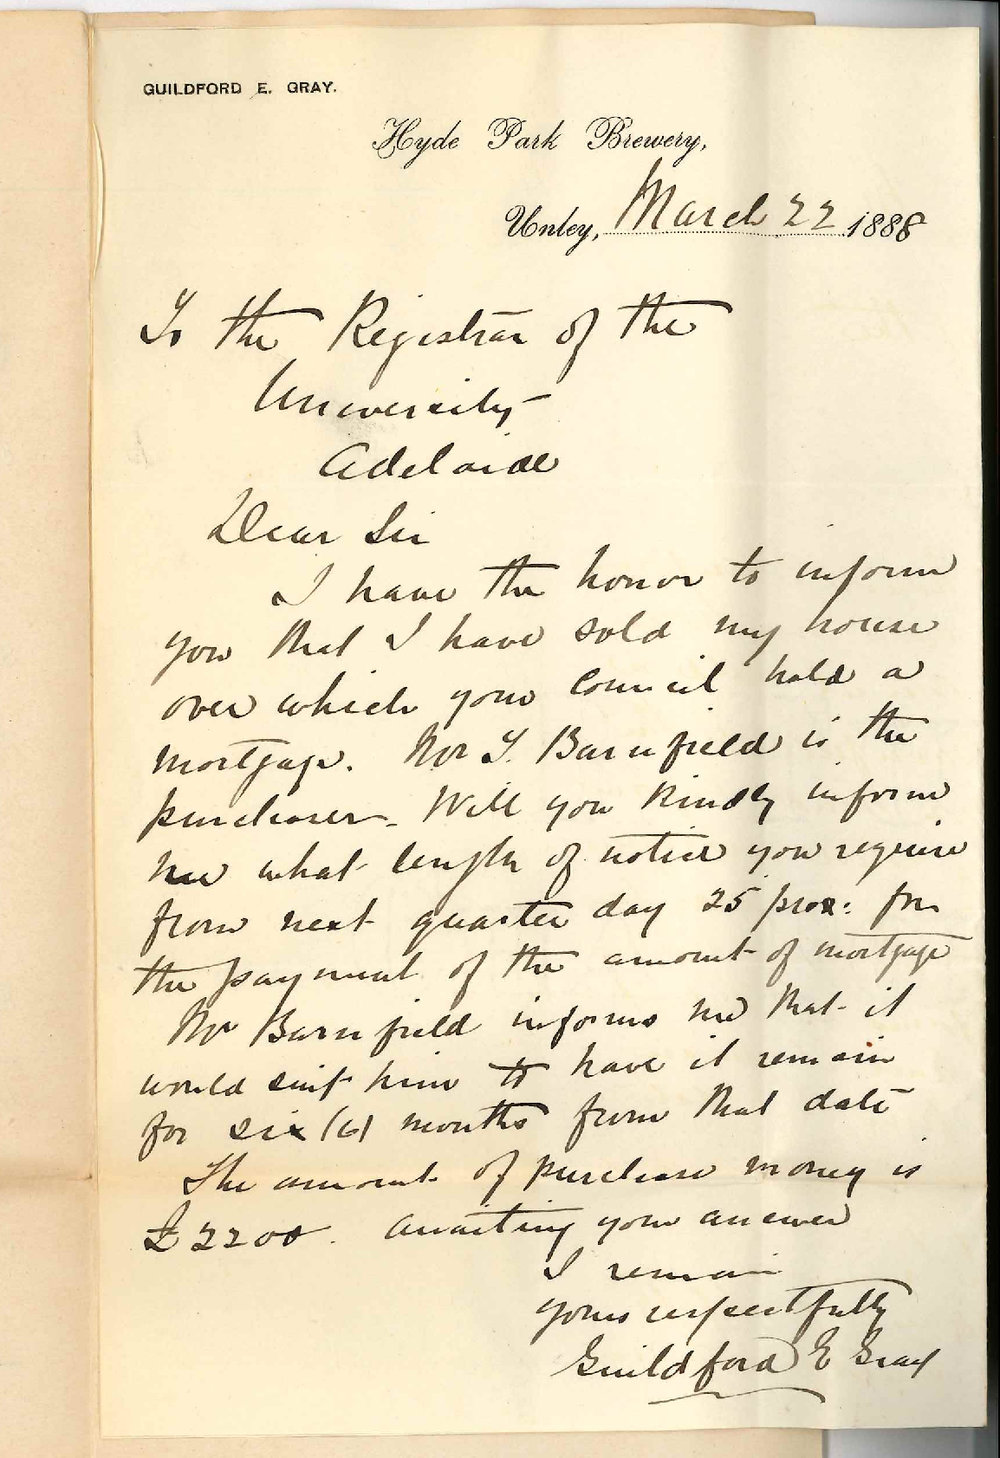 GUILDFORD E. GRAY.
Hyde Park Brewery,
Unley, March 22 1888
To the Registrar of the
University
Adelaide
Dear Sir
I have the honor to inform
you that I have sold my house
over which your Council hold a
mortgage. Mr T. Barnfield is the
purchaser. Will you kindly inform
me what length of notice you require
from next quarter day 25 prox: for
the payment of the amount of mortgage
Mr Barnfield informs me that it
would suit him to have it remain
for six (6) months from that date
The amount of purchase money is
£2200. Awaiting your answer
I remain
yours respectfully
Guildford E Gray